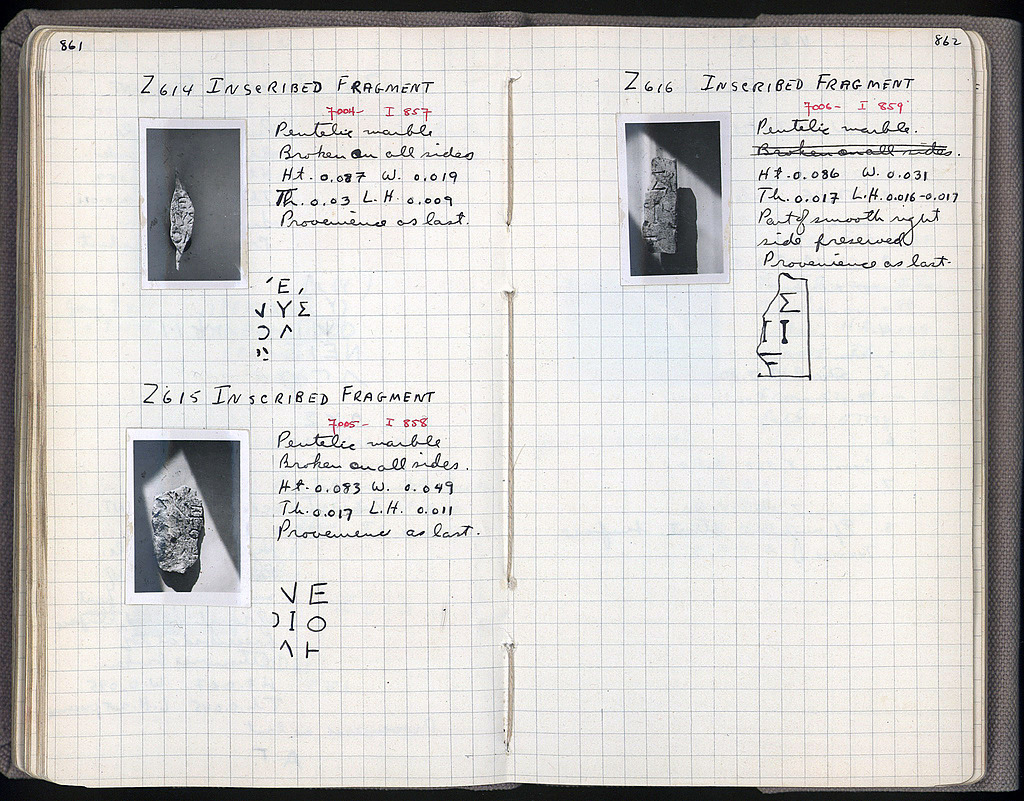 861
Z 614 INSCRIBED FRAGMENT
7004- I 857
Pentelic marble
Broken on all sides
Ht. 0.087 W. 0.019
Th. 0.03 L.H. 0.009
Provenience as last.
Ε
Υ Σ
Z 615 INSCRIBED FRAGMENT
7005- I 858
Pentelic marble
Broken on all sides.
Ht. 0.083 W. 0.049
Th. 0.017 L.H. 0.011
Provenience as last.
V E
Ι Ο
Λ Η
862
Z 616 INSCRIBED FRAGMENT
7006- I 859
Pentelic marble.
Broken on all sides.
Ht. 0.086 W. 0.031
Th. 0.017 L.H. 0.016-0.017
Part of smooth right
side preserved
Provenience as last.
Σ
Ι Ι